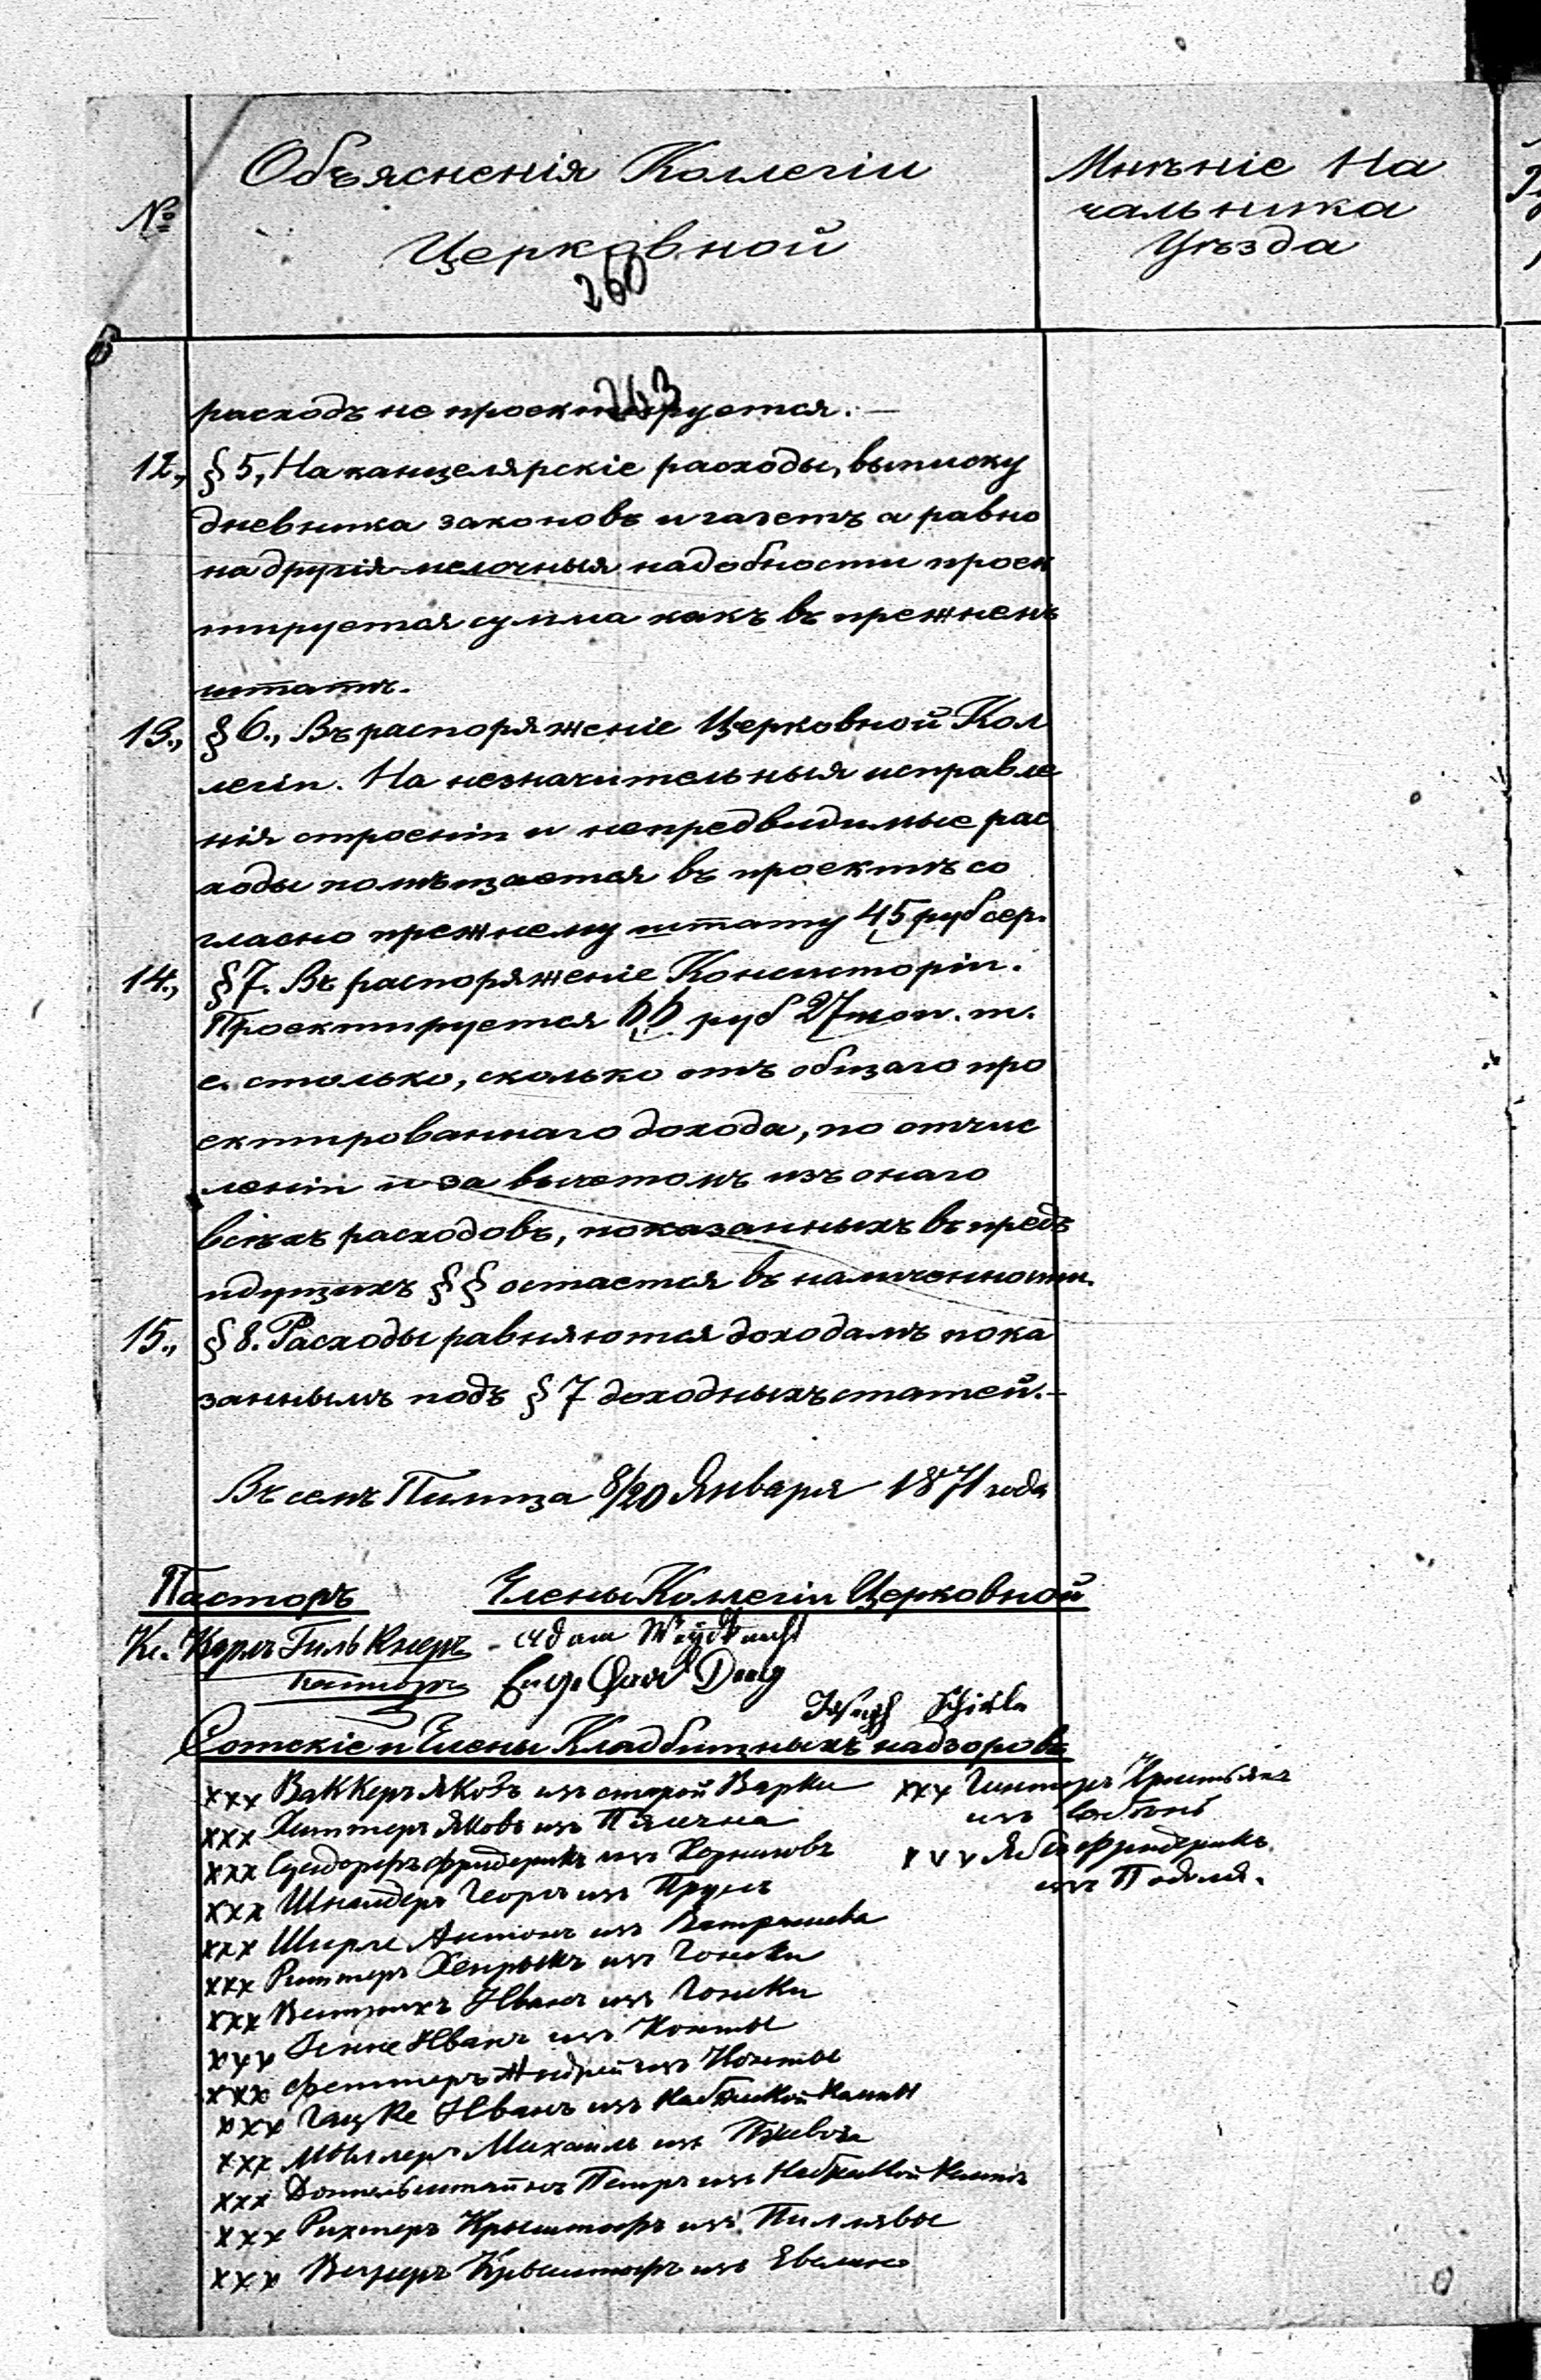 №
Объясненія Коллегіи
Церковной
260
Мнѣніе На
чальника
Уѣзда
263
расходъ не проектируется. —
12., § 5, На канцелярскіе расходы, выписку
дневника законовъ и газетъ а равно
на другія мелочныя надобности проек
тируется сумма какъ въ прежнемъ
штатѣ.
13., § 6., Въ распоряженіе Церковной Кол
легіи. На незначительныя исправле
нія строеніи и непредвидимые рас
ходы помѣщается въ проектѣ со
гласно прежнему штату 45 руб сер.
14., § 7. Въ распоряженіе Консисторіи.
Проектируется руб 27 коп. т.
е. столько, сколько отъ общаго про
ектированнаго дохода, по отчис
леніи и за вычетомъ изъ онаго
всѣхъ расходовъ, показанныхъ въ предъ
идущихъ §§ остается въ наличенности.
15., § 8. Расходы равняются доходамъ пока
заннымъ подъ § 7 доходныхъ статей. —
Въ селѣ Пилица 8/20 Января 1871 года
Пасторъ Члены Коллегіи Церковной
Кс. Карлъ Гилькнеръ Adam Weydknecht
Пасторъ
Joseph
Сотскіе и Члены Кладбищныхъ надзоровъ
xxx Ваккеръ Яковъ изъ старой Варки
xxx Яковъ изъ
xxx фридерикъ изъ
xxx Шнайдеръ Георгъ изъ
xxx Ширле Антонъ изъ
xxx Риттеръ Хенрыкъ изъ Гоники
xxx Иванъ изъ Гоники
xxx Иванъ изъ
xxx феттеръ Андрей изъ
xxx Гацке Иванъ изъ
xxx Мюллеръ Михаилъ изъ
xxx Петръ изъ
xxx Рихтеръ Крыштофъ изъ Пилявы
xxx Вагнеръ Крыштофъ изъ
xxx Гинтеръ Христьянъ
изъ
xxx фридерикъ
изъ Подоля.